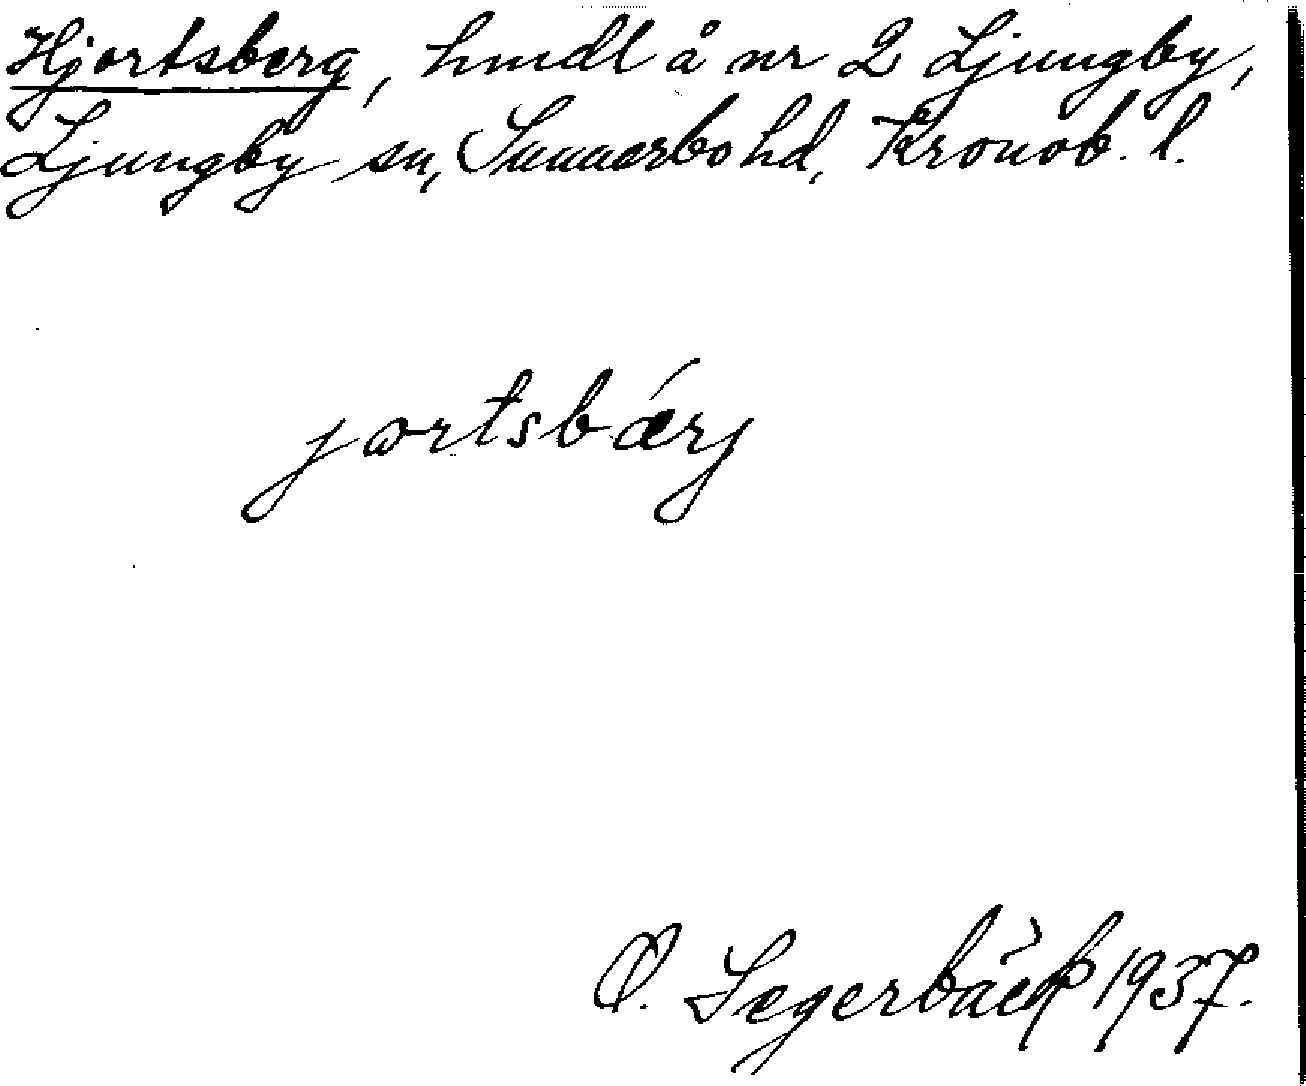 Hjortsberg, hmdl å nr 2 Ljungby,
Ljungby sn, Sunnerbo hd, Kronob. l.
jortsbǽrj
O. Segerbäck 1937.